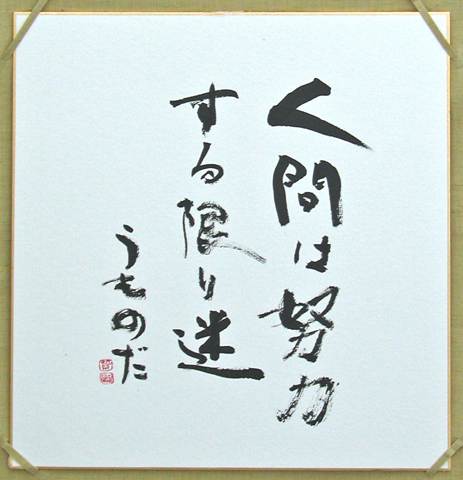 人間は努力
する限り迷
うものだ